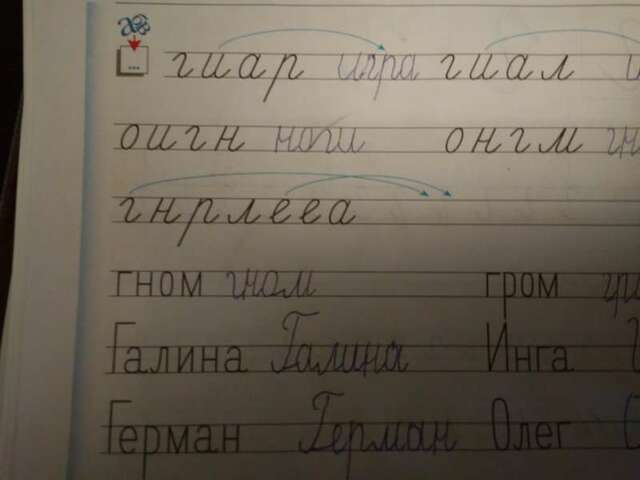 гиар игра гиал
оигн ноги онгм
гнрлееа
гном гном гром
Галина Галина Инга
Герман Герман Олег